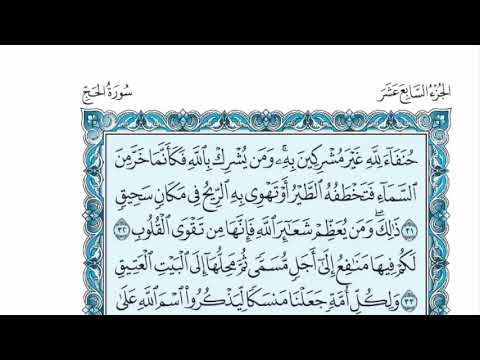 الجزء السابع عشر
سورة الحج
حُنَفَآءَ لِلَّهِ غَيْرَ مُشْرِكِينَ بِهِۦۚ وَمَن يُشْرِكْ بِٱللَّهِ فَكَأَنَّمَا خَرَّ مِنَ
ٱلسَّمَآءِ فَتَخْطَفُهُ ٱلطَّيْرُ أَوْ تَهْوِى بِهِ ٱلرِّيحُ فِى مَكَانٍ سَحِيقٍ
٣١ ذَٰلِكَۖ وَمَن يُعَظِّمْ شَعَٰٓئِرَ ٱللَّهِ فَإِنَّهَا مِن تَقْوَى ٱلْقُلُوبِ ٣٢
لَكُمْ فِيهَا مَنَٰفِعُ إِلَىٰٓ أَجَلٍ مُّسَمًّى ثُمَّ مَحِلُّهَآ إِلَى ٱلْبَيْتِ ٱلْعَتِيقِ
٣٣ وَلِكُلِّ أُمَّةٍ جَعَلْنَا مَنسَكًا لِّيَذْكُرُوا۟ ٱسْمَ ٱللَّهِ عَلَىٰ